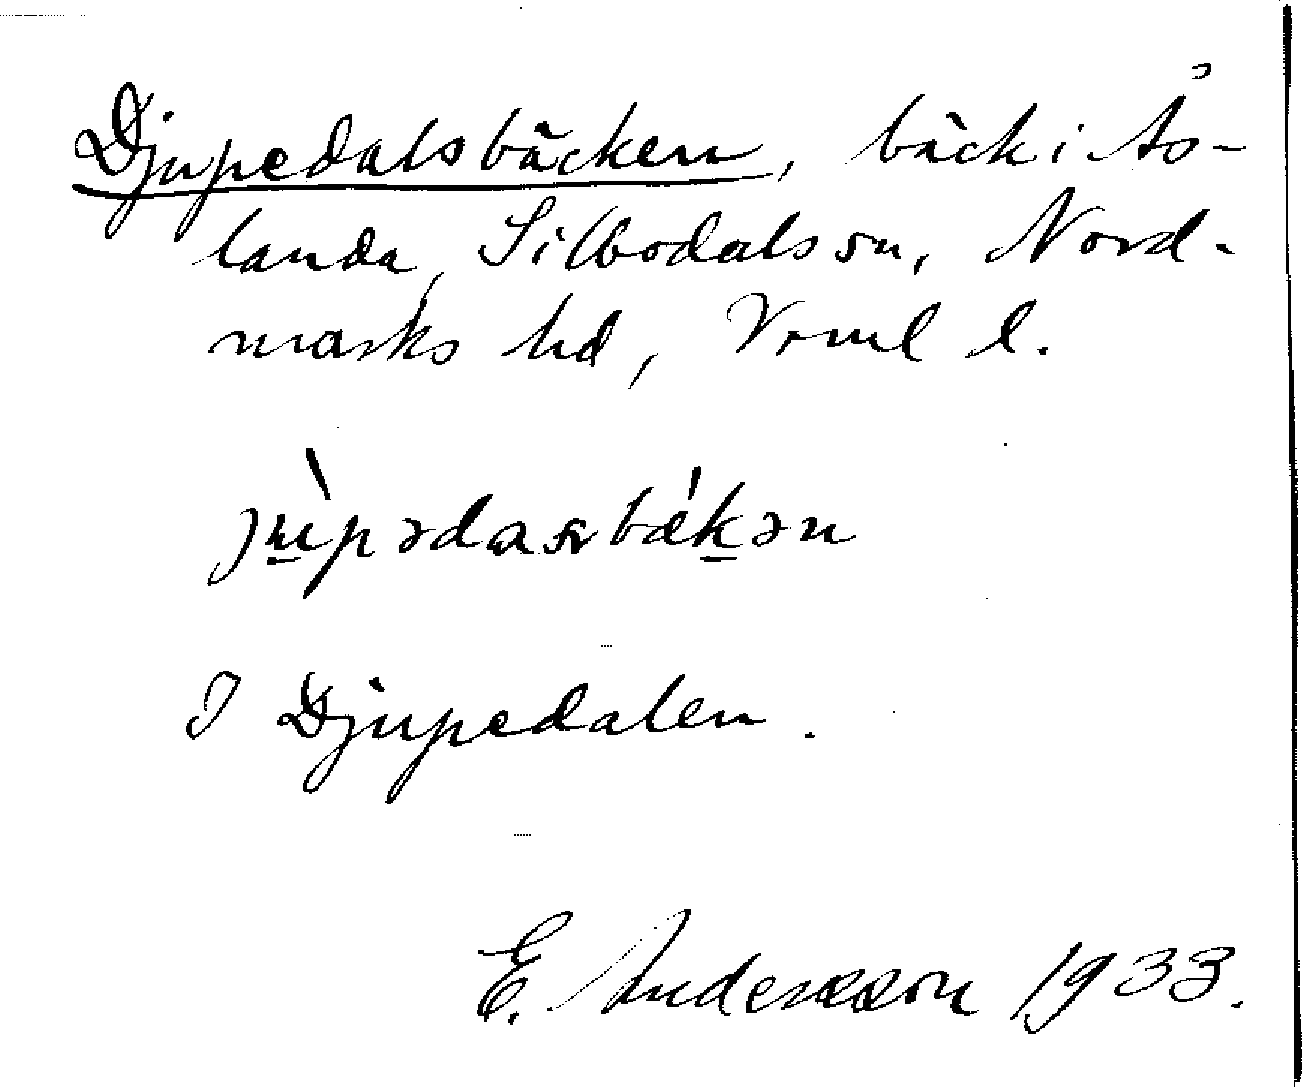 Djupedalsbäcken, bäck i Ås-
landa, Silbodals sn, Nord-
marks hd, Vrml l.
I Djupedalen.
E. Andersson 1933.